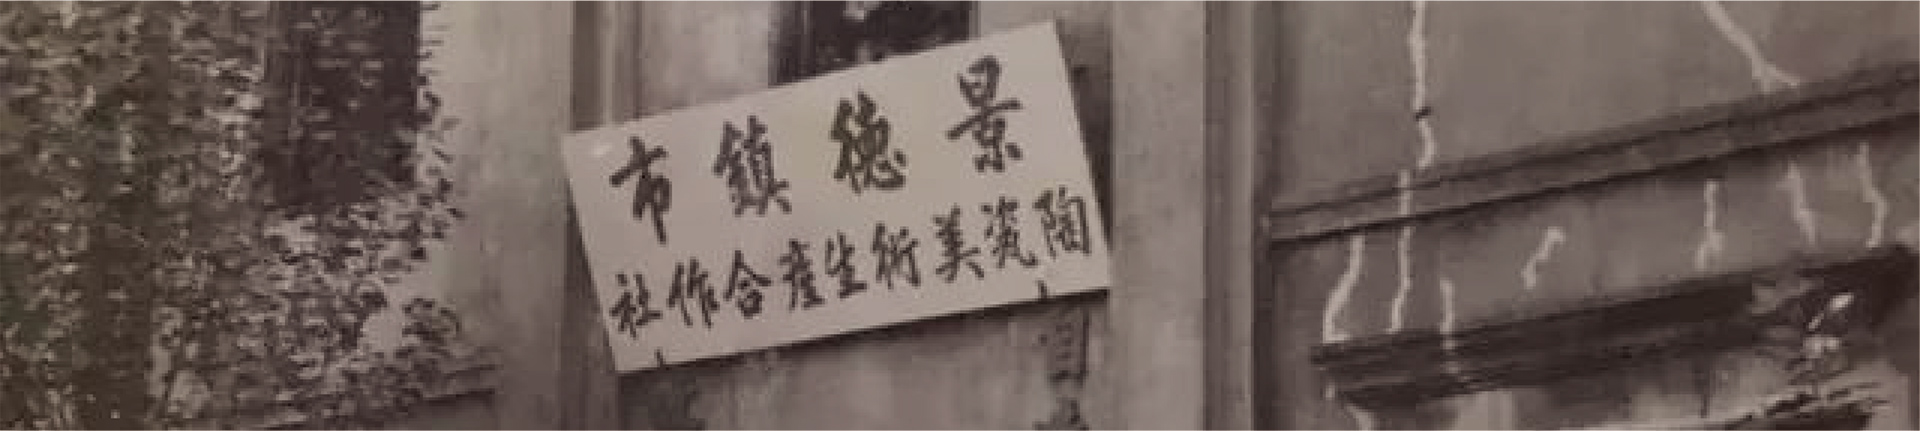 景德鎮市
陶瓷美術生產合作社